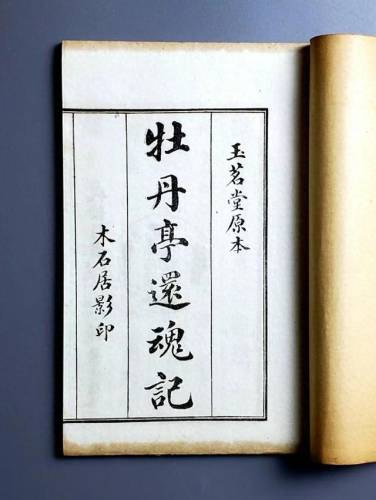 玉茗堂原本
牡丹亭還魂記
木石居影印